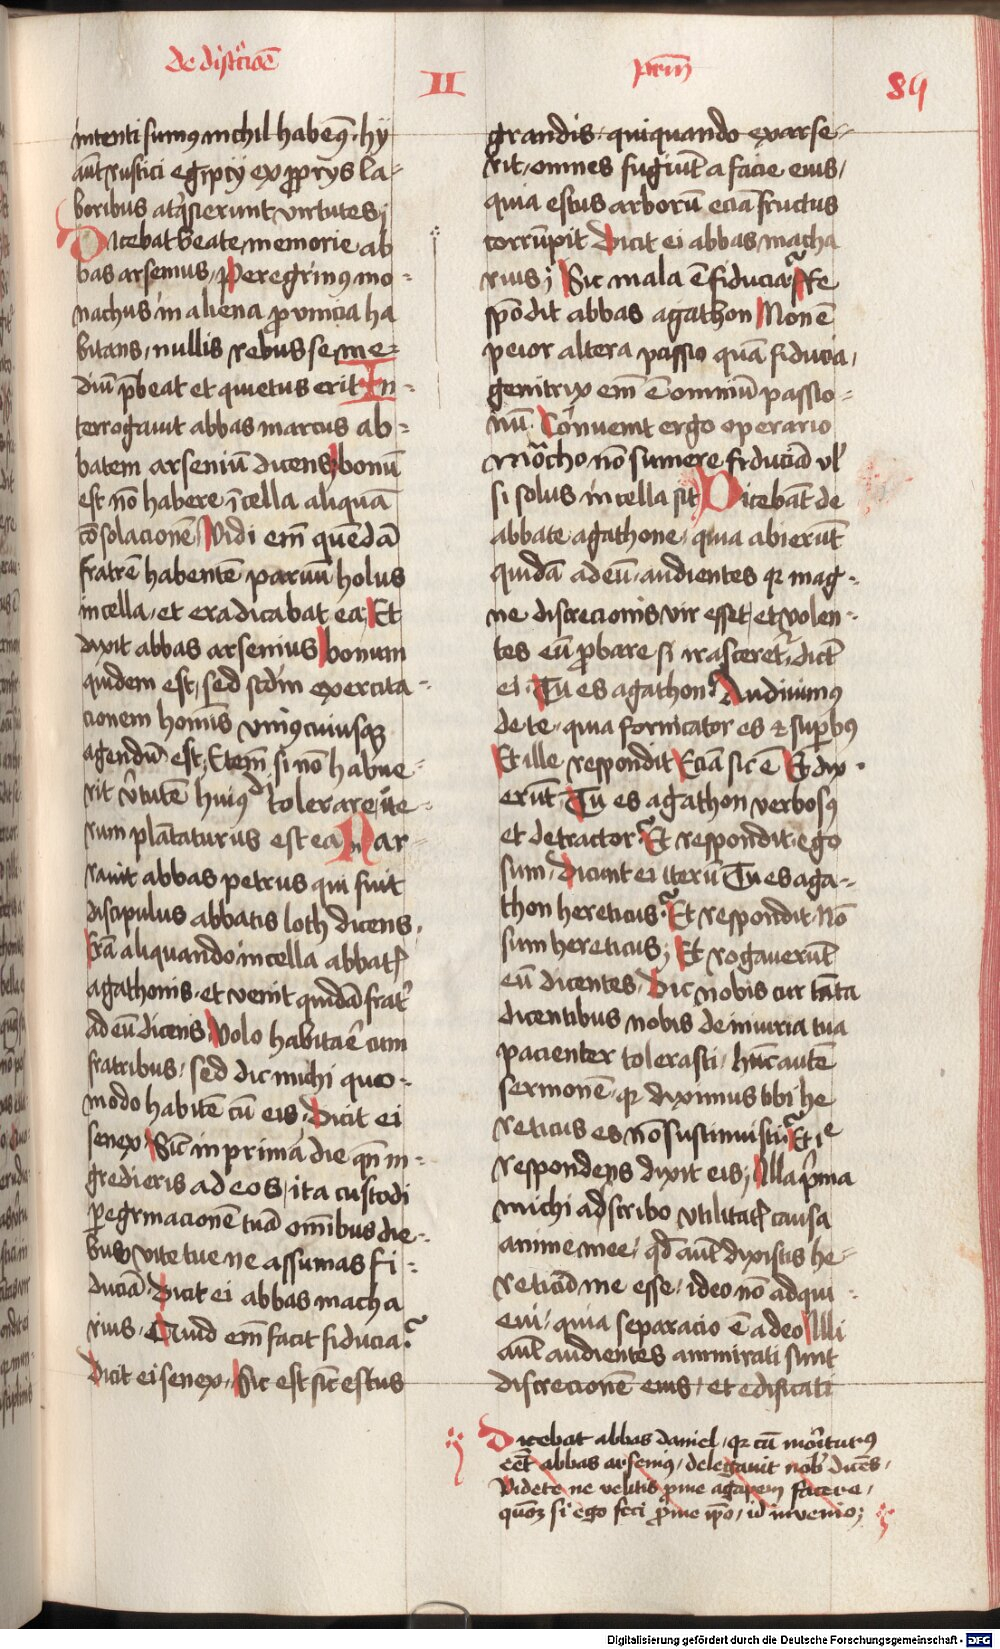 de discrecōe
II
prim
89
intenti sumꝰ nichil habemꝰ · hij
aūt rustici egiptij ex ꝓprijs la-
boribus atq̄sierunt virtutes ;
Dicebat beate memorie ab
bas arsenius , Peregrinꝰ mo-
nachus in aliena ꝓvincia ha
bitans , nullis rebus se me-
diū p̄beat et quietus erit In-
terrogauit abbas marcus ab-
batem arseniū dicens bonū
est nō habere ī cella aliquā
cōsolacionē Vidi em̄ quendā
fratrē habentē paruū holus
in cella , et eradicabat ea Et
dixit abbas arsenius bonum
quidem est , sed scdm̄ exercita-
cionem hominis vniuscuiusqꝫ
agendū est , Etem̄ si nō habue-
rit v̄tutē huiꝰ tolerare ite-
rum plātaturus est ea Nar-
rauit abbas petrus qui fuit
discipulus abbatis loth dicens ,
Erā aliquando in cella abbatꝭ
agathonis , et venit quidā frat̄
ad eū dicens Volo habitare cum
fratribus , sed dic michi quo-
modo habitē cū eis , Dicit ei
senex Sic in prima die qn̄ in-
gredieris ad eos , ita custodi
peregrinacionē tuā omībus die-
bus vite tue ne assumas fi-
duciā , Dicit ei abbas macha
rius , Quid em̄ facit fiducia ?
Dicit ei senex , Sic est sic̄ estus
grandis , qui quando exarse-
rit , omnes fugiūt a facie eius ,
quia estus arborū eciā fructus
corrūpit Dicit ei abbas macha
rius ; Sic mala ē fiducia ? Re
spōdit abbas agathon Non ē
peior altera passio quā fiducia ,
genitrix em̄ ē omniū passio-
nū . Conuenit ergo operario
mōcho nō sumere fiduciā vl̄
si solus in cella sit Dicebāt de
abbate agathone , quia abierūt
quidā ad eū , audientes qꝛ mag-
ne discrecionis vir esset , et volen-
tes eū ꝓbare si irasceret᷑ , dicūt
ei . Tu es agathon ? Audiuimꝰ
de te , quia fornicator es ⁊ suꝑbꝰ
Et ille respondit Eciā sic ē Et dix-
erūt Tu es agathon verbosꝰ
et detractor ? Et respondit , ego
sum , Dicunt ei iterū Tu es aga-
thon hereticus ? Et respondit , Nō
sum hereticus ; Et rogauerūt
eū dicentes , Dic nobis cur tāta
dicentibus nobis de iniuria tua
pacienter tolerasti , hūc autē
sermonē , qꝛ diximus tibi he
reticus es nō sustinuisti ? Et ie
respondens dixit eis ; Illa p̄ma
michi adscribo vtilitatꝭ causa
anime mee , qd̄ aūt dixistis he-
reticū me esse , ideo nō adqui-
eui , quia separacio ē a deo Illi
aūt audientes ammirati sunt
discrecionē eius , et edificati
Dicebat abbas daniel , qꝛ cū moriturꝰ
eēt abbas arseniꝰ , delegauit nob̄ dicēs ,
Videte ne velitis ꝓ me agapem facere ,
quonꝫ si ego feci ꝓ me ip̄o , id invenio ;
Digitalisierung gefördert durch die Deutsche Forschungsgemeinschaft - DFG